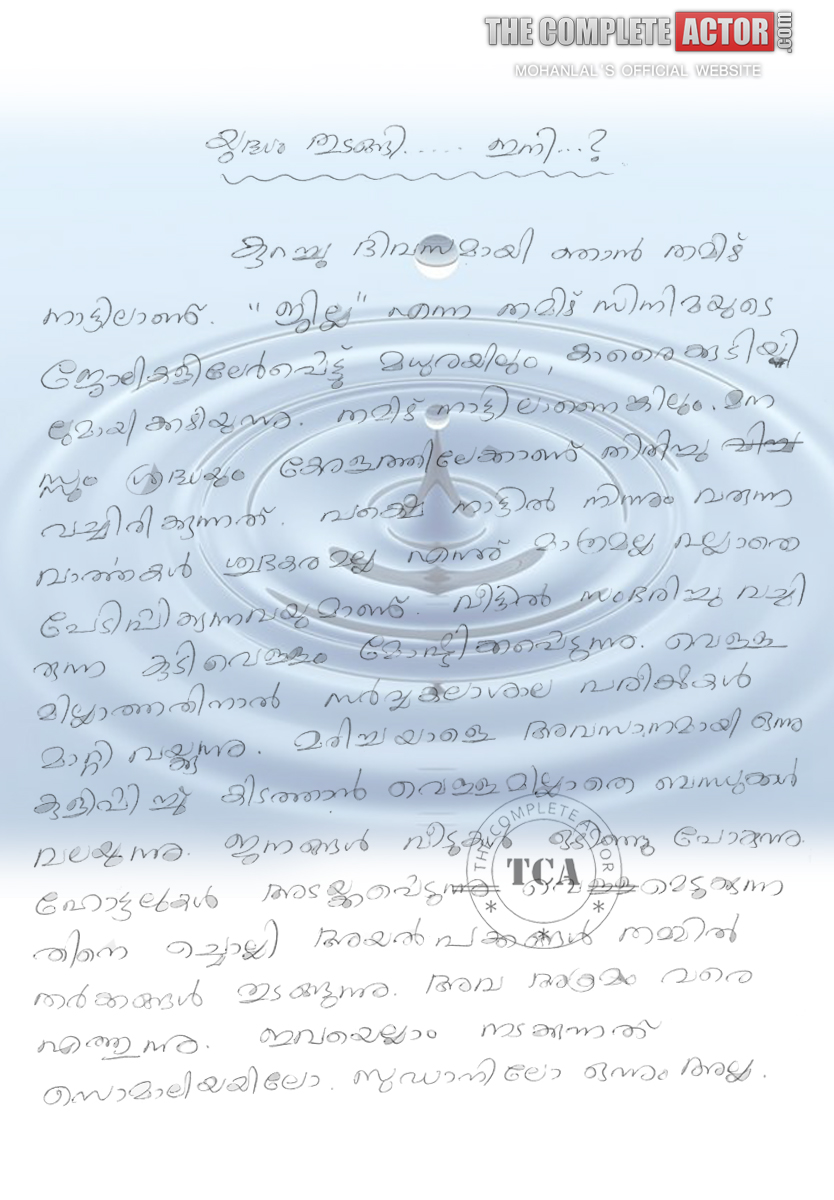 THE COMPLETE ACTOR .com
MOHANLAL'S OFFICIAL WEBSITE
യുദ്ധം തുടങ്ങി..... ഇനി...?
കുറച്ചു ദിവസമായി ഞാൻ തമിഴ്
നാട്ടിലാണ്. "ജില്ല" എന്ന തമിഴ് സിനിമയുടെ
ജോലികളിലേർപ്പെട്ട് മധുരയിലും, കാരൈക്കുടിയി
ലുമായി കഴിയുന്നു. തമിഴ് നാട്ടിലാണെങ്കിലും. മന
സ്സും ശ്രദ്ധയും കേരളത്തിലേക്കാണ് തിരിച്ചു
വച്ചിരിക്കുന്നത്. പക്ഷെ നാട്ടിൽ നിന്നും വരുന്ന
വാർത്തകൾ ശുഭകരമല്ല എന്ന് മാത്രമല്ല വല്ലാതെ
പേടിപ്പിക്കുന്നവയുമാണ്. വീട്ടിൽ സംഭരിച്ചു വച്ചി
രുന്ന കുടിവെള്ളം മോഷ്ടിക്കപ്പെടുന്നു. വെള്ള
മില്ലാത്തതിനാൽ സർവ്വകലാശാല പരീക്ഷകൾ
മാറ്റി വയ്ക്കുന്നു. മരിച്ചയാളെ അവസാനമായി ഒന്നു
കുളിപ്പിച്ച് കിടത്താൻ വെള്ളമില്ലാതെ ബന്ധുക്കൾ
വലയുന്നു. ജനങ്ങൾ വീടുകൾ ഒഴിഞ്ഞു പോകുന്നു.
ഹോട്ടലുകൾ അടയ്ക്കപ്പെടുന്നു വെള്ളമെടുക്കുന്ന
തിനെ ചൊല്ലി അയൽപക്കങ്ങൾ തമ്മിൽ
തർക്കങ്ങൾ തുടങ്ങുന്നു. അവ അക്രമം വരെ
എത്തുന്നു. ഇവയെല്ലാം നടക്കുന്നത്
സൊമാലിയയിലോ. സുഡാനിലോ ഒന്നും അല്ല.
THE COMPLETE ACTOR
TCA